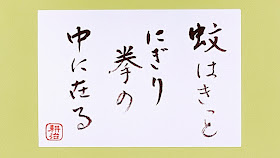 蚊はきっと
にぎり
拳の
中に在る